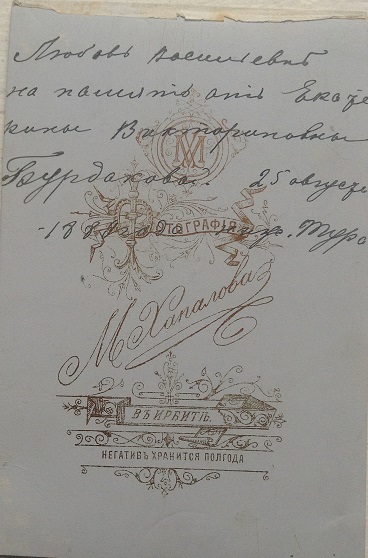 Любовь Васильевнѣ
на память отъ Екате
рины Викториновны
Бурдаковой. 25 августа
М
ФОТОГРАФІЯ
М Хапалова
ВЪ ИРБИТѢ
НЕГАТИВЪ ХРАНИТСЯ ПОЛГОДА